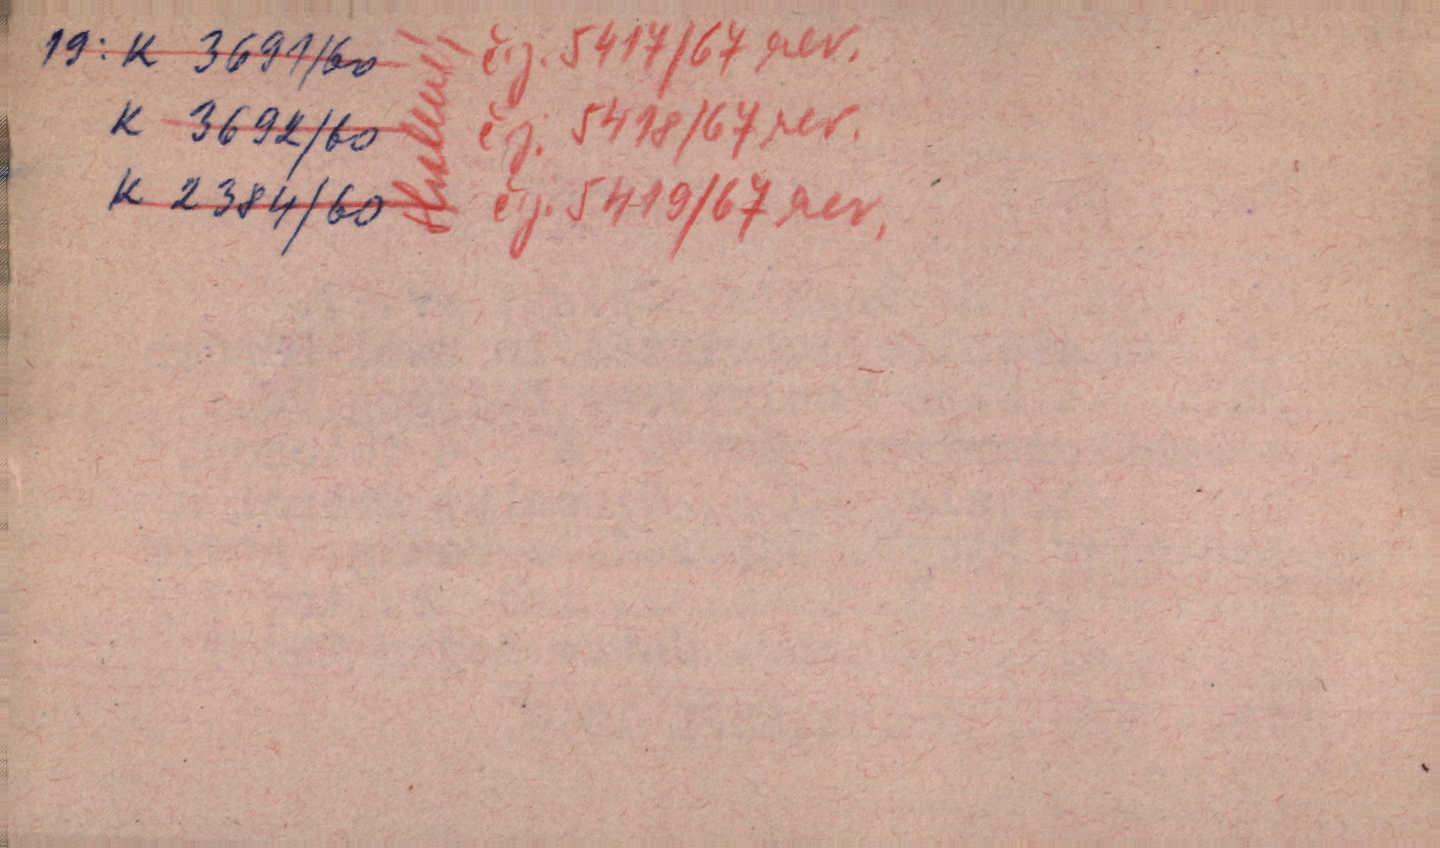 19: K 3691/60 čj. 5417/67 rev.
K 3692/60 čj. 5418/67 rev.
K 2384/60 čj. 5419/67 rev.